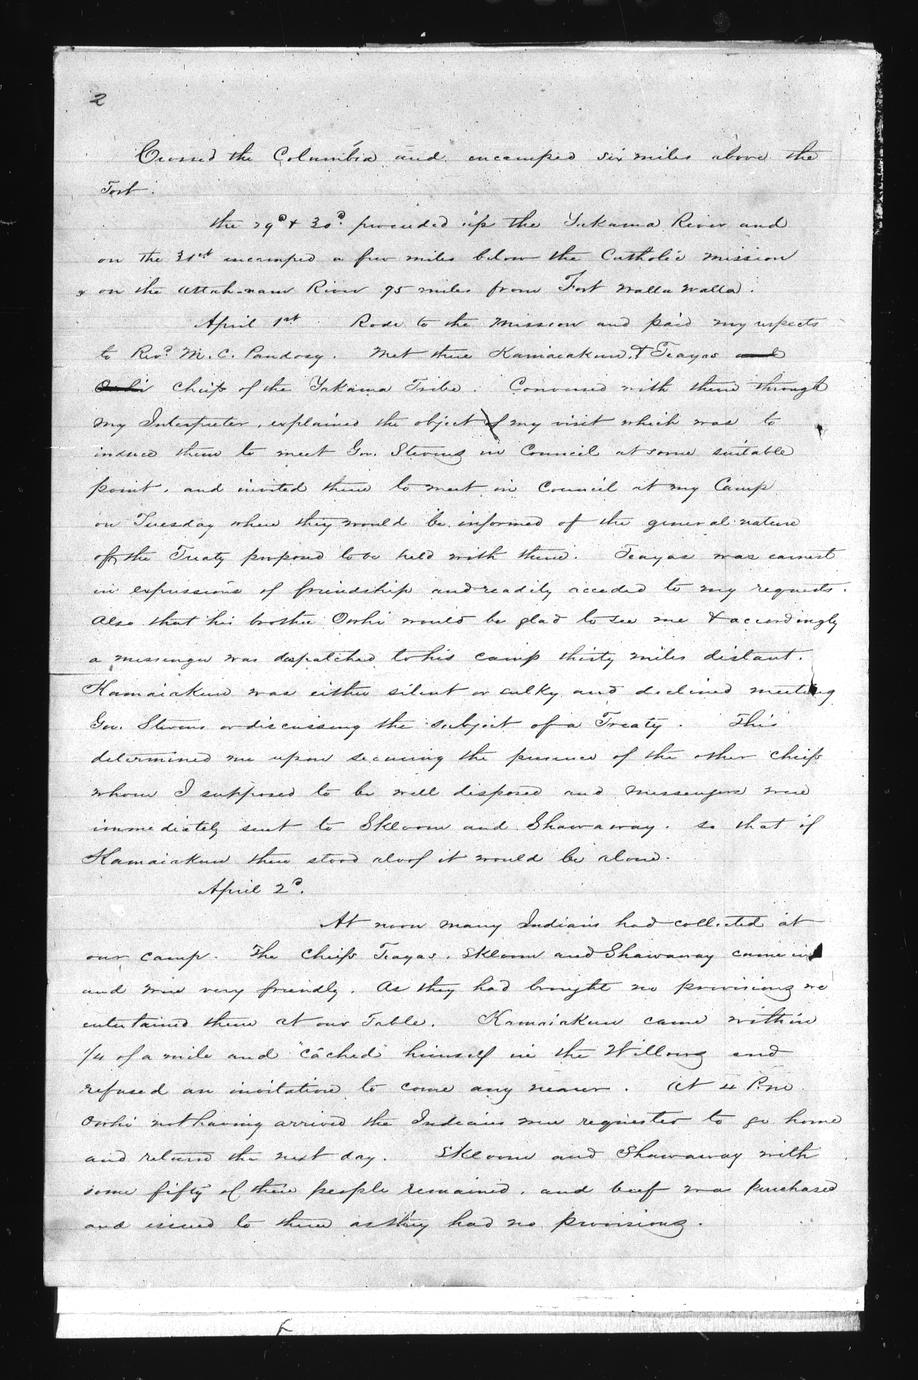 2
Crossed the Columbia and encamped six miles above the
Fort.
the 29d & 30d. proceeded up the Yakama River and
on the 31st encamped a few miles below the Catholic mission
& on the Attah-nam River 95 miles from Fort Walla Walla.
April 1st Rode to the Mission and paid my respects
to Revd. M. C. Pandosy. Met there Kamaiakun, & Teayas and
Owhi chiefs of the Yakama Tribe. Conversed with them through
my Interpreter, explained the object of my visit which was to
induce them to meet Gov. Stevens in Council at some suitable
point, and invited them to meet in Council at my Camp
on Tuesday where they would be informed of the general nature
of the Treaty proposed to be held with them. Teayas was earnest
in expressions of friendship and readily acceded to my requests.
Also that his brother Owhi would be glad to see me & accordingly
a messenger was dispatched to his camp thirty miles distant.
Kamaiakun was either silent or sulky and declined meeting
Gov. Stevens or discussing the subject of a Treaty. This
determined me upon securing the presence of the other chiefs
whom I supposed to be well disposed and messengers were
immediately sent to Skloom and Shawaway. so that if
Kamaiakun then stood aloof it would be alone.
April 2d.
At noon many Indians had collected at
our camp. The chiefs Teayas, Skloom and Shawaway came in
and were very friendly. As they had brought no provisions we
entertained them at our Table. Kamaiakun came within
1/4 of a mile and "cached" himself in the Willows and
refused an invitation to come any nearer. At 4 P.m.
Owhi not having arrived the Indians were requested to go home
and return the next day. Skloom and Shawaway with
some fifty of their people remained, and beef was purchased
and issued to them as they had no provisions.